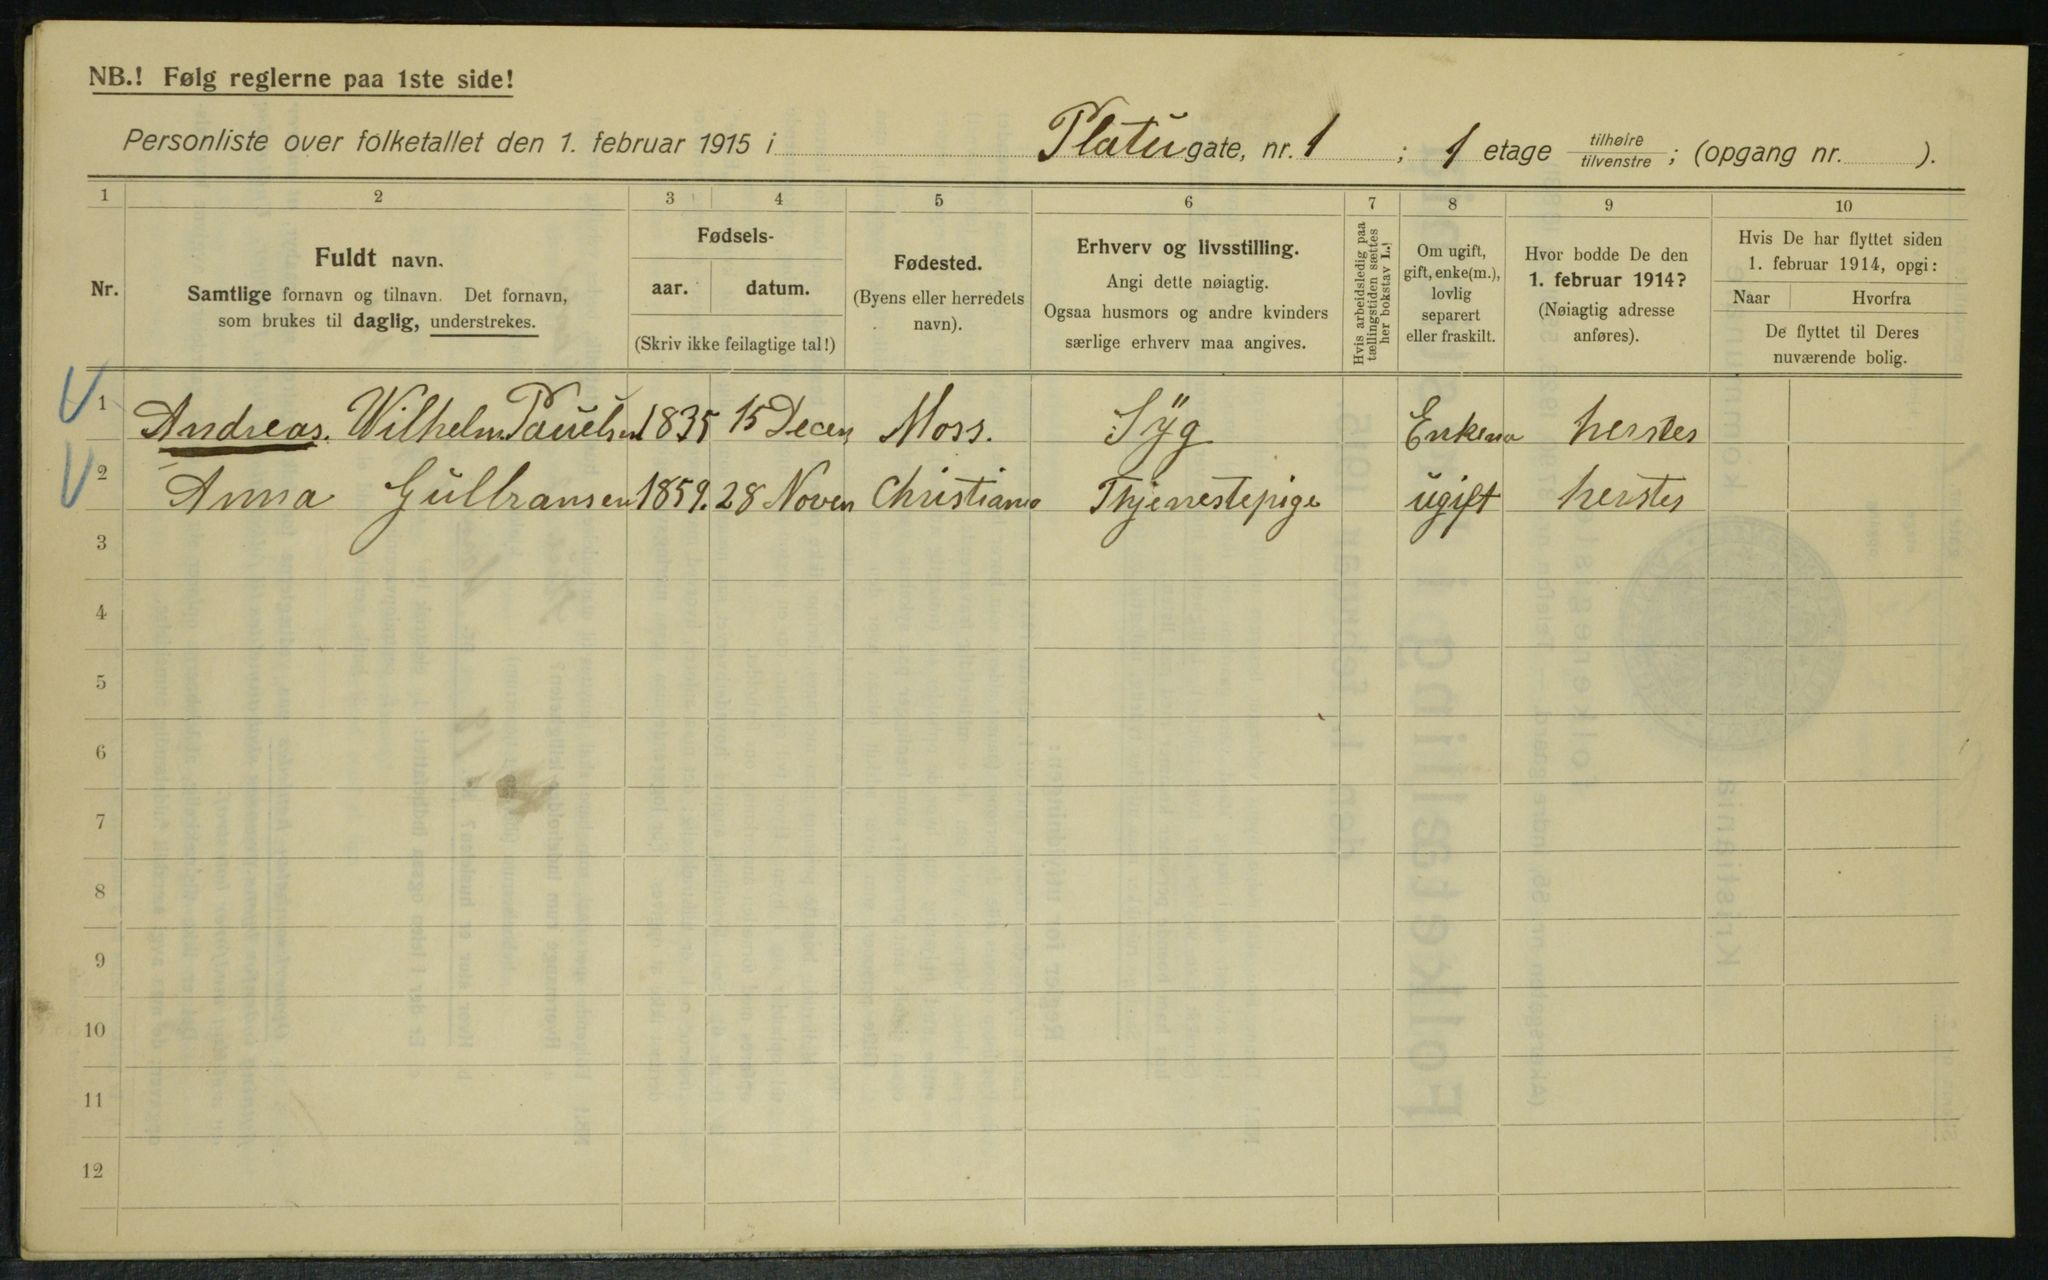 NB.! Følg reglerne paa 1ste side!
Personliste over folketallet den 1. februar 1915 i Platu gate, nr. 1 ; 1 etage tilhøire tilvenstre ; (opgang nr. ).
1 2 3 4 5 6 7 8 9 10
Nr.
Fuldt navn.
Samtlige fornavn og tilnavn. Det fornavn,
som brukes til daglig, understrekes.
Fødsels-
aar. datum.
(Skriv ikke feilagtige tal!)
Fødested.
(Byens eller herredets
navn).
Erhverv og livsstilling.
Angi dette nøiagtig.
Ogsaa husmors og andre kvinders
særlige erhverv maa angives.
Hvis arbeidsledig paa
tællingstiden sættes
her bokstav L.!
Om ugift,
gift, enke(m.),
lovlig
separert
eller fraskilt.
Hvor bodde De den
1. februar 1914?
(Nøiagtig adresse
anføres).
Hvis De har flyttet siden
1. februar 1914, opgi:
Naar Hvorfra
De flyttet til Deres
nuværende bolig.
1 Andreas. Wilhelm Pauelsen 1835 15 Decem Moss. Syg Enkema herstes
2 Anna Gulbransen 1859. 28 Novem Christiania Thjenestepige ugift herstes
3
4
5
6
7
8
9
10
11
12